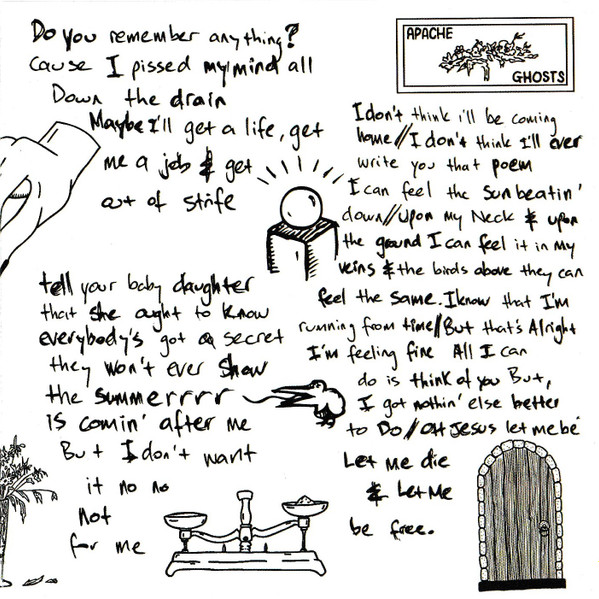 Do you remember anything?
cause I pissed my mind all
Down the drain
Maybe I'll get a life, get
me a job & get
out of strife
tell your baby daughter
that she ought to know
everybody's got a secret
they won't ever show
the summerrrr
is comin' after me
But I don't want
it no no
not
for me
APACHE
GHOSTS
I don't think i'll be coming
home//I don't think I'll ever
write you that poem
I can feel the sun beatin'
down//upon my Neck & upon
the ground I can feel it in my
veins & the birds above they can
feel the same. I know that I'm
running from time//But that's Alright
I'm feeling fine All I can
do is think of you But,
I got nothin' else better
to Do//OH Jesus let me be
Let me die
& Let Me
be free.